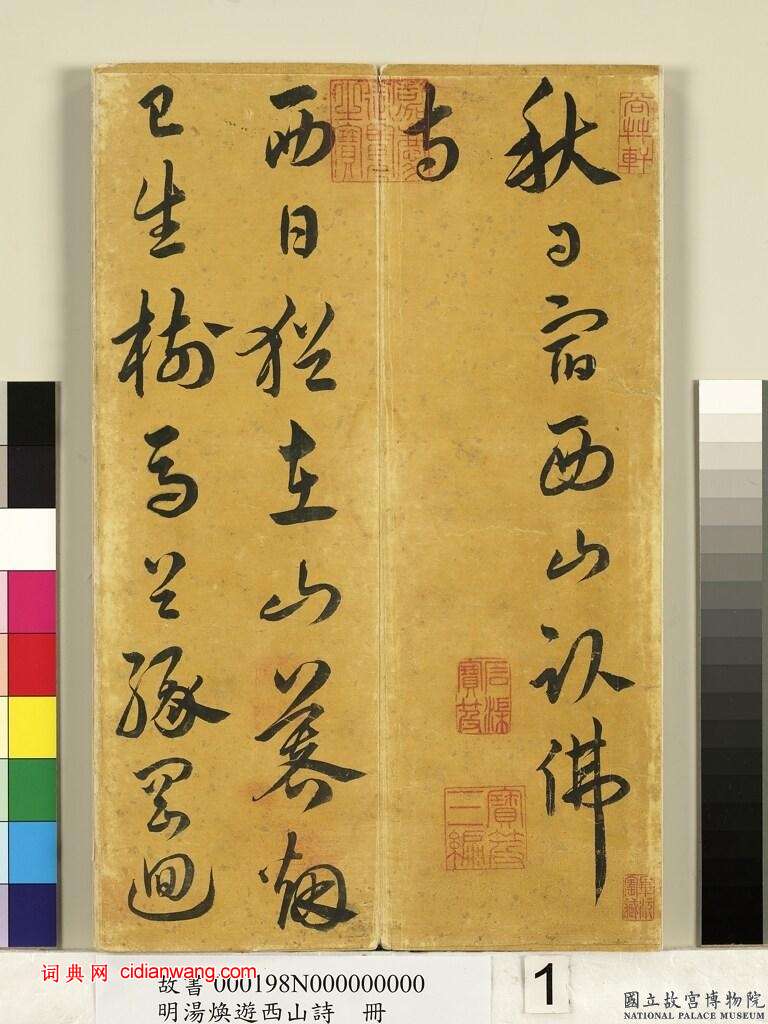 秋日宿西山臥佛
寺
西日猶在山暮烟
已生樹馬足緣岡迴
寶笈
三編
石渠
寶笈
嘉慶
御覽
之寶
詞典网 cidianwang.com
故書 000198N000000000
明湯煥遊西山詩 冊
1
國立故宮博物院
NATIONAL PALACE MUSEUM